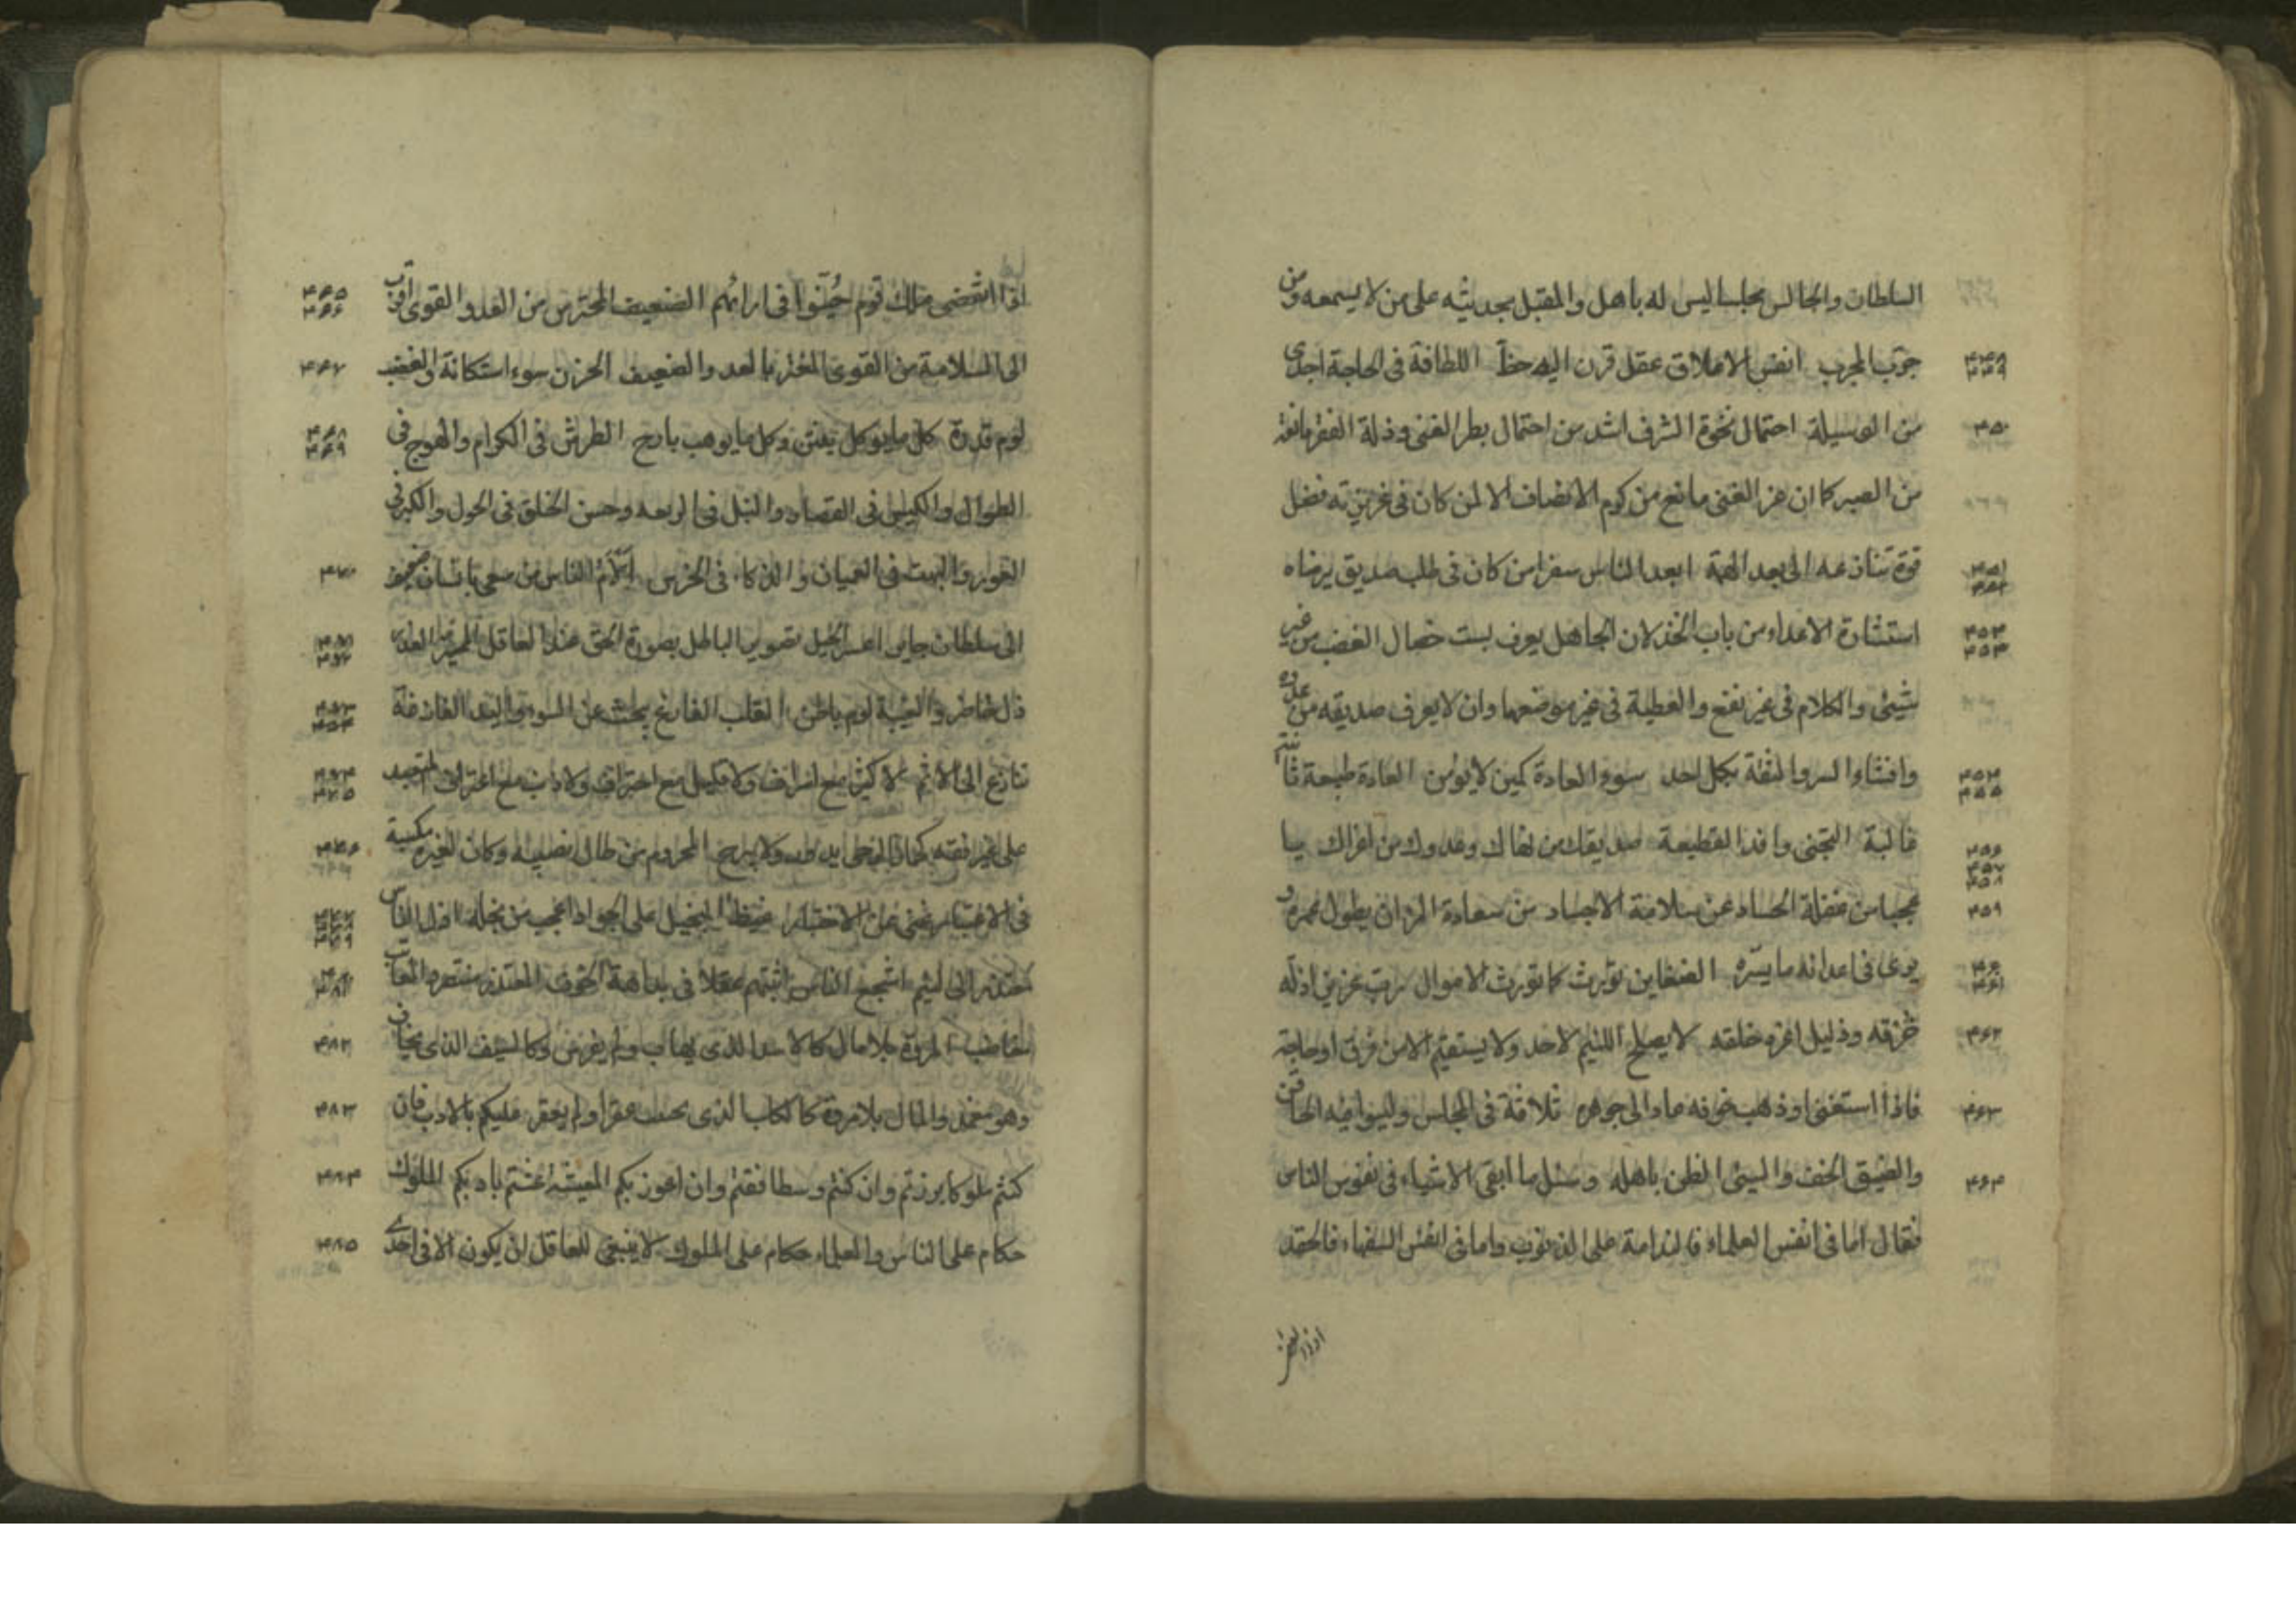 السلطان والجالس مجلسا ليس له باهل والمقبل بحديثه على من لا يسمعه ومن
۴۴۸ ۴۴۹ جرّب المجرب انفس الاعلاق عقل قرن اليه حظ اللطافة فى الحاجة اجدى
۴۵۰ من الوسيلة احتمال نخوة الشرف اشد من احتمال بطر الغنى وذلة الفقر مانعة
من الصبر كما ان عز الغنى مانع من كرم الانصاف الا لمن كان فى غريزته فضل
۴۵۱ ۴۵۲ قوة تنازعه الى بعد الهمة ابعد الناس سفرا من كان فى طلب صديق يرضاه
۴۵۳ استشارة الاعداء من باب الخذلان الجاهل يعرف بست خصال الغضب من غير
شيئ والكلام فى غير نفع والعطية فى غير موضعها وان لا يعرف صديقه من عدوه
۴۵۴ ۴۵۵ وافشاء السر والثقة بكل احد سوء العادة كمين لا يؤمن العادة طبيعة ثانية
۴۵۶ ۴۵۷ ۴۵۸ غالبة التجنى وافد القطيعة صديقك من نهاك وعدوك من اغراك يا
۴۵۹ عجبا من غفلة الحساد عن سلامة الاجساد من سعادة المرء ان يطول عمره و
۴۶۰ ۴۶۱ يرى فى اعدائه ما يسرّه الضغاين تورث كما تورث الاموال رب عزيز اذله
۴۶۲ خرقه وذليل اعزه خلقه لا يصلح اللئيم لاحد ولا يستقيم الا من فرق او حاجة
۴۶۳ فاذا استغنى او ذهب خوفه عاد الى جوهره ثلاثة فى المجلس وليسوا فيه الحاقن
۴۶۴ والضيق الخف والسيئ الظن باهله وسئل ما ابقى الاشياء فى نفوس الناس
فقال اما فى انفس العلماء فالندامة على الذنوب واما فى انفس السفهاء فالحقد
۴۶۵ ۴۶۶ اذا انقضى ملك قوم خيّبوا فى ارائهم الضعيف المحترس من العدو القوى اقرب
۴۶۷ الى السلامة من القوى المغتر بالعدو الضعيف الحزن سوء استكانة والغضب
۴۶۸ ۴۶۹ لوم قدرة كل ما يوكل ينتن وكل ما يوهب يارج الطرش فى الكرام والهوج فى
الطوال والكيس فى القصار والنبل فى الربعه وحسن الخلق فى الحول والكبر فى
۴۷۰ العور والبهت فى العميان والذكاء فى الخرس الام الناس من سعى بانسان ضعيف
۴۷۱ ۴۷۲ الى سلطان جاير اعسر الحيل تصوير الباطل بصورة الحق عند العاقل المميز الغدر
۴۷۳ ذل حاضر والغيبة لوم باطن القلب الفارغ يبحث عن السوء واليد الفارغة
۴۷۴ ۴۷۵ تنازع الى الاثم لا كثير مع اسراف ولا قليل مع احتراف ولا ذنب مع اعتراف المتعبد
۴۷۶ على غير فقه كحمار الرحى يدور ولا يبرح المحروم من طال نصبه وكان لغيره مكسبه
فى الاعتبار غنى عن الاختبار غيظ البخيل على الجواد اعجب من بخله اذل الناس
معتذر الى لئيم اشجع الناس اثبتهم عقلا فى بداهة الخوف المعتذر منتصر المعاتب
۴۸۲ مغاضب المروة بلا مال كالاسد الذى يهاب ولم يفرس وكالسيف الذى يخاف
۴۸۳ وهو مغمد والمال بلا مروة كالكلب الذى يجتنب عقرا ولم يعقر عليكم بالادب فان
۴۸۴ كنتم ملوكا برزتم وان كنتم وسطا فقتم وان اعوزتكم المعيشة عشتم بادبكم الملوك
۴۸۵ حكام على الناس والعلماء حكام على الملوك لا ينبغى للعاقل ان يكون الا فى احدى